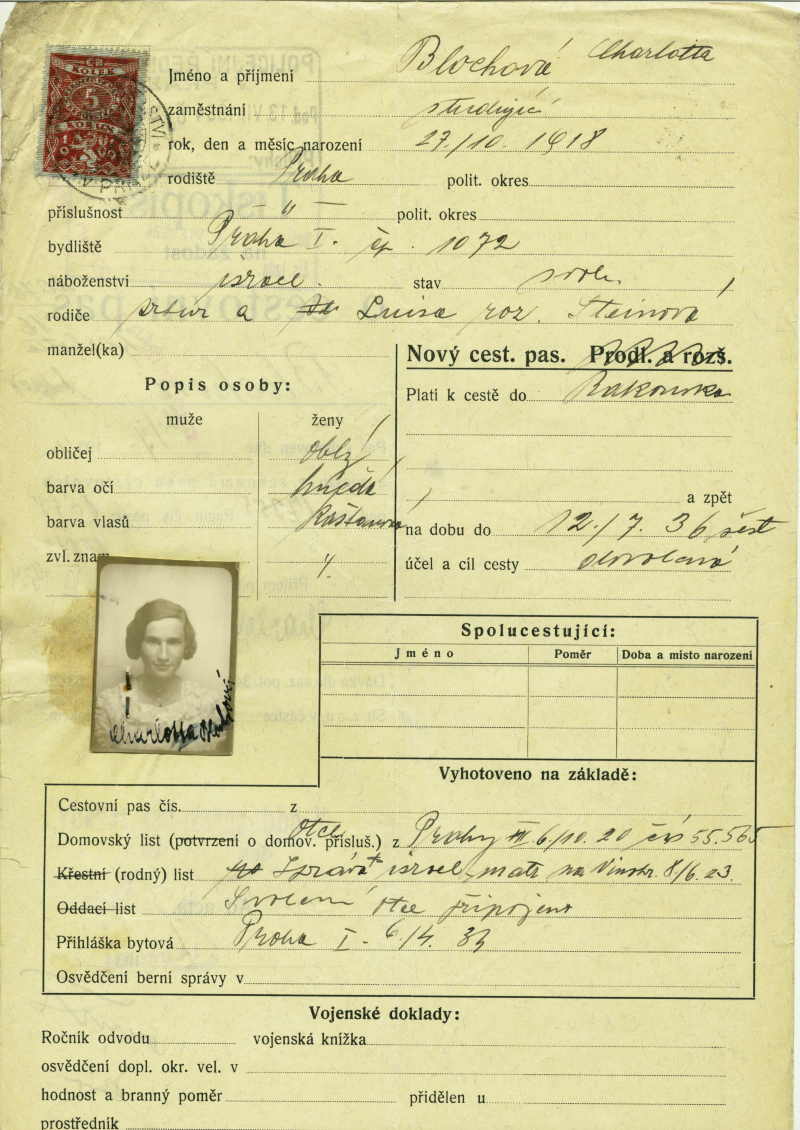 KOLEK
5
KORUN
Jméno a příjmení Blochová Charlotta
zaměstnání studující
rok, den a měsíc narození 27/10. 1918
rodiště Praha polit. okres
příslušnost — " — polit. okres
bydliště Praha I. čp. 1072
náboženství israel. stav svob.
rodiče Artur a Luisa roz. Steinová
manžel(ka)
Nový cest. pas. Prodl. a rozš.
Popis osoby:
Platí k cestě do Rakouska
muže ženy
obličej oblý
barva očí hnědá
barva vlasů kaštanová
a zpět
na dobu do 12./7. 36
zvl. znam
účel a cíl cesty dovolená
Charlotta Blochová
Spolucestující:
Jméno Poměr Doba a místo narození
Vyhotoveno na základě:
Cestovní pas čís. z
Domovský list (potvrzení o domov. přísluš.) otce z Prahy 6/10. 20 čís 55.565
Křestní (rodný) list Zpráva israel. matr. na Vinohr. 8/6. 23.
Oddací list Svolení otce připojeno
Přihláška bytová Praha I. 6/4. 33
Osvědčení berní správy v
Vojenské doklady:
Ročník odvodu vojenská knížka
osvědčení dopl. okr. vel. v
hodnost a branný poměr přidělen u
prostředník